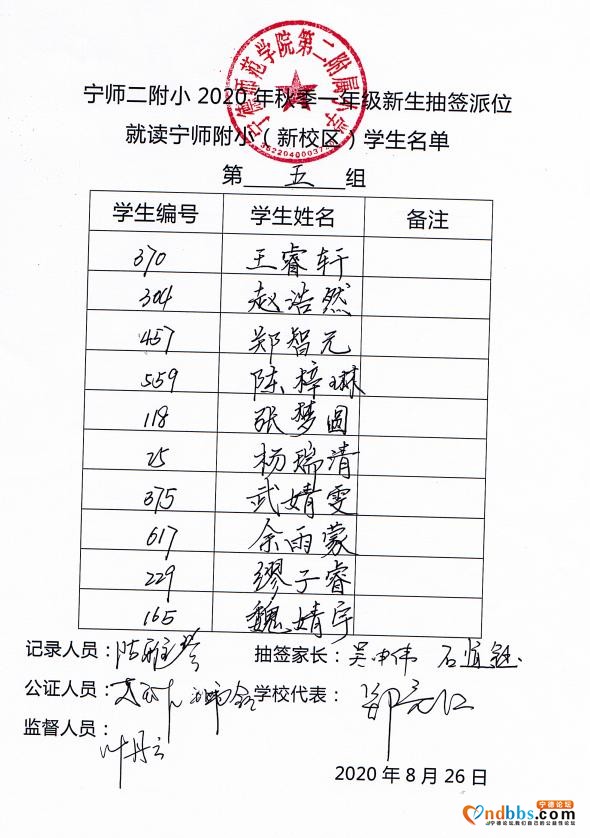 宁师二附小 2020 年秋季一年级新生抽签派位
就读宁师附小（新校区）学生名单
宁德师范学院第二附属小学
第 五 组
学生编号 学生姓名 备注
370 王睿轩
304 赵浩然
457 郑智元
559 陈梓琳
118 张梦圆
25 杨瑞清
375 武婧雯
617 余雨蒙
229 缪子睿
165 魏婧宇
记录人员： 抽签家长：
公证人员： 学校代表：
监督人员： 叶丹云
2020 年 8 月 26 日
宁德论坛
ndbbs.com
宁德论坛,我们自己的公益性论坛